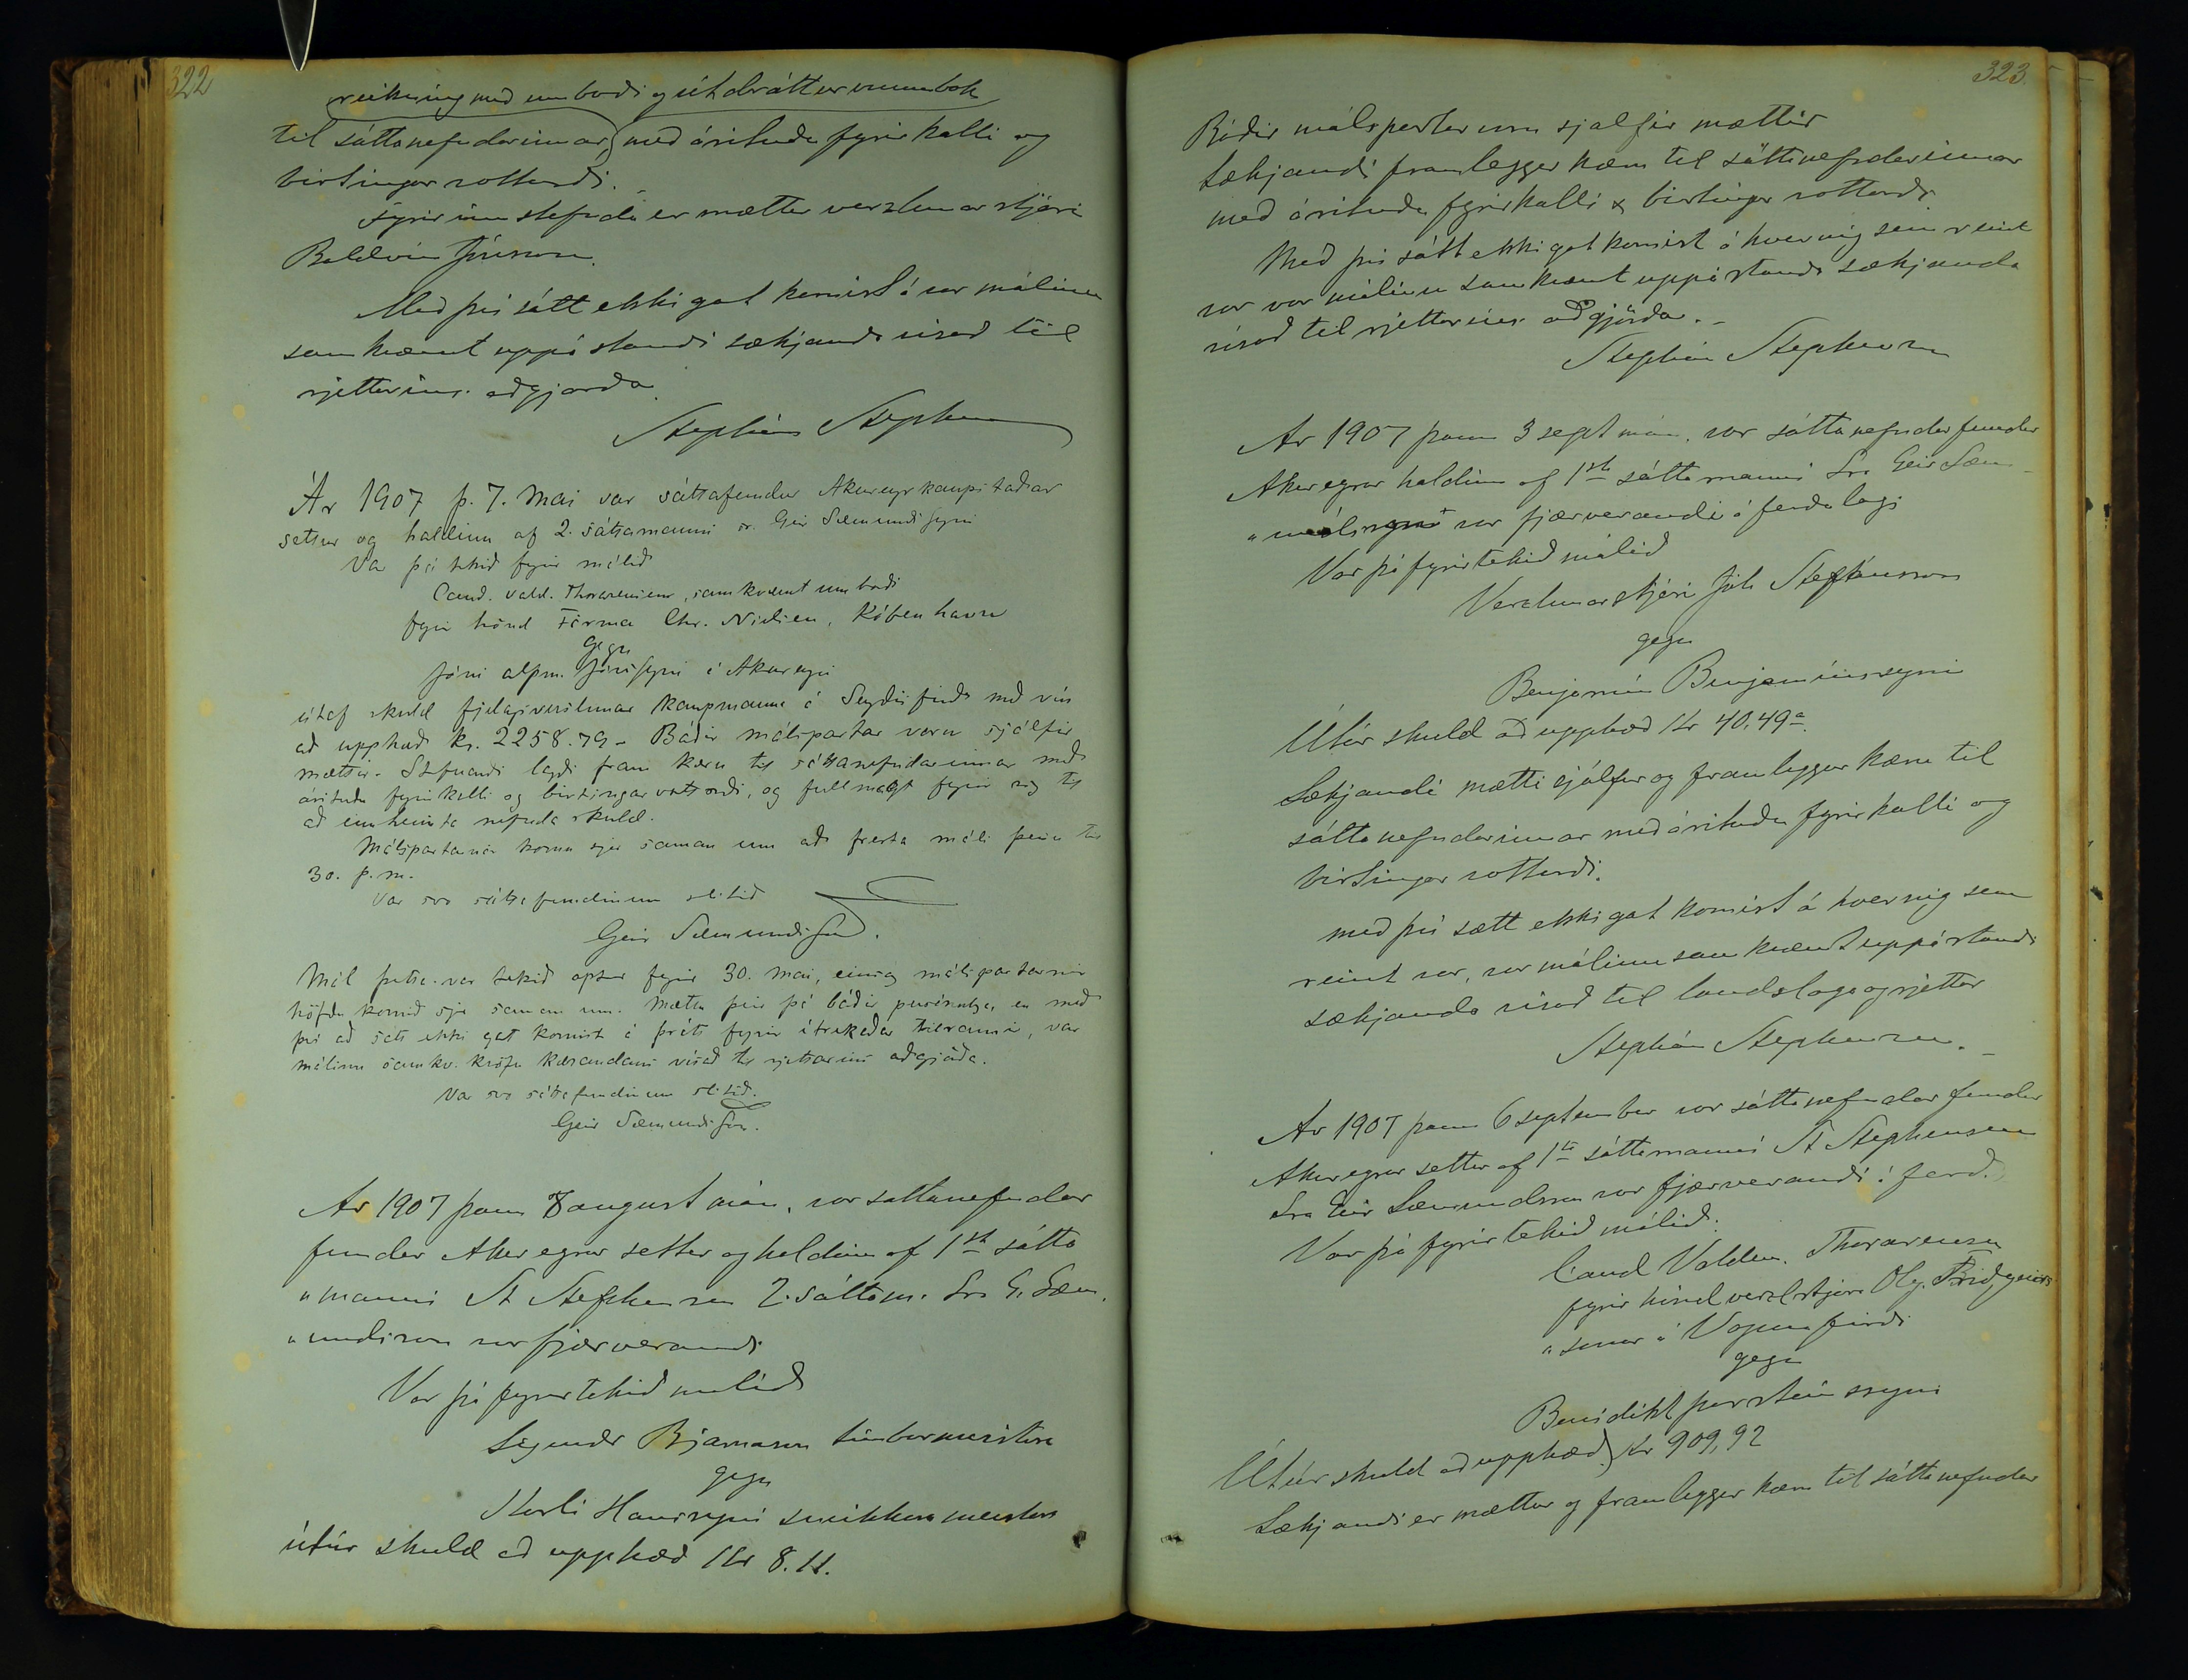 322
reikning með umboði og útdráttur úr
til sáttanefndarinnar, með árituðu fyrirkalli og
birtingar vottorði.
Fyrir inn stefnda er mættur verzlunarstjóri
Baldvin Jónsson.
Með því sátt ekki gat komist á var málinu
samkvæmt uppástandi sækjanda vísað til
rjettarins aðgjörða.
Stephán Stephensen
Ár 1907 þ. 7. Mai var sáttafundur Akureyrkaupstaðar
settur og haldinn af 2. sáttamanni sr. Geir Sæmundssyni
Var þá tekið fyrir málið
Cand. Vald. Thorarensen, samkvæmt umboði
fyrir hönd Firma Chr. Nielsen, Köbenhavn
gegn
Jóni alþm. Jónssyni á Akureyri
útaf skuld fjelagsverslunar kaupmanna á Seyðisfirði
að upphæð kr. 2258.79 - Báðir málspartar voru sjálfir
mættir. Stefnandi lagði fram kæru til sáttanefndarinnar með
árituðu fyrirkalli og birtingarvottorði, og fullmagt fyrir sig til
að innheimta nefnda skuld.
Málspartarnir komu sjer saman um að fresta máli þessu til
30. þ.m.
Var svo sáttafundinum slitið
Geir Sæmundsson.
Mál þetta var tekið aptur fyrir 30. mai, eins og málspartarnir
höfðu komið sjer saman um. Mættu þeir þá báðir persónulega, en með
því að sátt ekki gat komist á þrátt fyrir ítrekaðar tilraunir, var
málinu samkv. kröfu kærandans vísað til rjettarins aðgjörða.
Var svo sáttafundinum slitið.
Geir Sæmundsson.
Ár 1907 þann 8 august mán. var sáttanefndar
fundur Akureyrar settur og haldinn af 1sta sátta
"manni St Stephensen 2. sáttam. Sra G. Sæm.
"undsson var fjærverandi
Var þá fyrirtekið málið
Sigurður Bjarnason timburmeistara
gegn
Karli Hanssyni snikkara meistara
útúr skuld að upphæð Kr 8.11.
323.
Báðir málspartar eru sjálfir mættir
Sækjandi framleggur kæru til sáttanefndarinnar
með árituðu fyrirkalli & birtingar vottorði
Með því sátt ekki gat komist á hvernig sem reint
var var málinu samkvæmt uppástandi sækjanda
vísað til rjettarins aðgjörða. -
Stephán Stephensen
Ár 1907 þann 3 sept mán. var sáttanefndarfundur
Akureyrar haldinn af 1sta sáttamanni Sra Geir Sæm-
var fjærverandi á ferðalagi
Var þá fyrirtekið málið
Verzlunarstjóri Jóh Stefánsson
gegn
Benjamín Benjamínssyni
Útúr skuld að upphæð Kr 40.49a.
Sækjandi mætti sjálfur og framleggur kæru til
sáttanefndarinnar með árituðu fyrirkalli og
birtingar vottorði.
með því sætt ekki gat komist á hvernig sem
reint var, var málinu samkvæmt uppástandi
sækjanda vísað til landslaga og rjettar
Stephán Stephensen. -
Ár 1907 þann 6 september var sáttanefndar fundur
Akureyrar settur af 1ta sáttamanni St Stephensen
Sra Geir Sæmundsson var fjærverandi í ferð.
Var þá fyrirtekið málið.
Cand Valdem. Thorarensen
fyrir hönd verzlstjóra Olg. Friðgeirs
"sonar á Vopnafirði
gegn
Benidikt Þorsteinssyni
Útúr skuld að upphæð Kr 909,92
Sækjandi er mættur og framleggur kæru til sáttanefndar